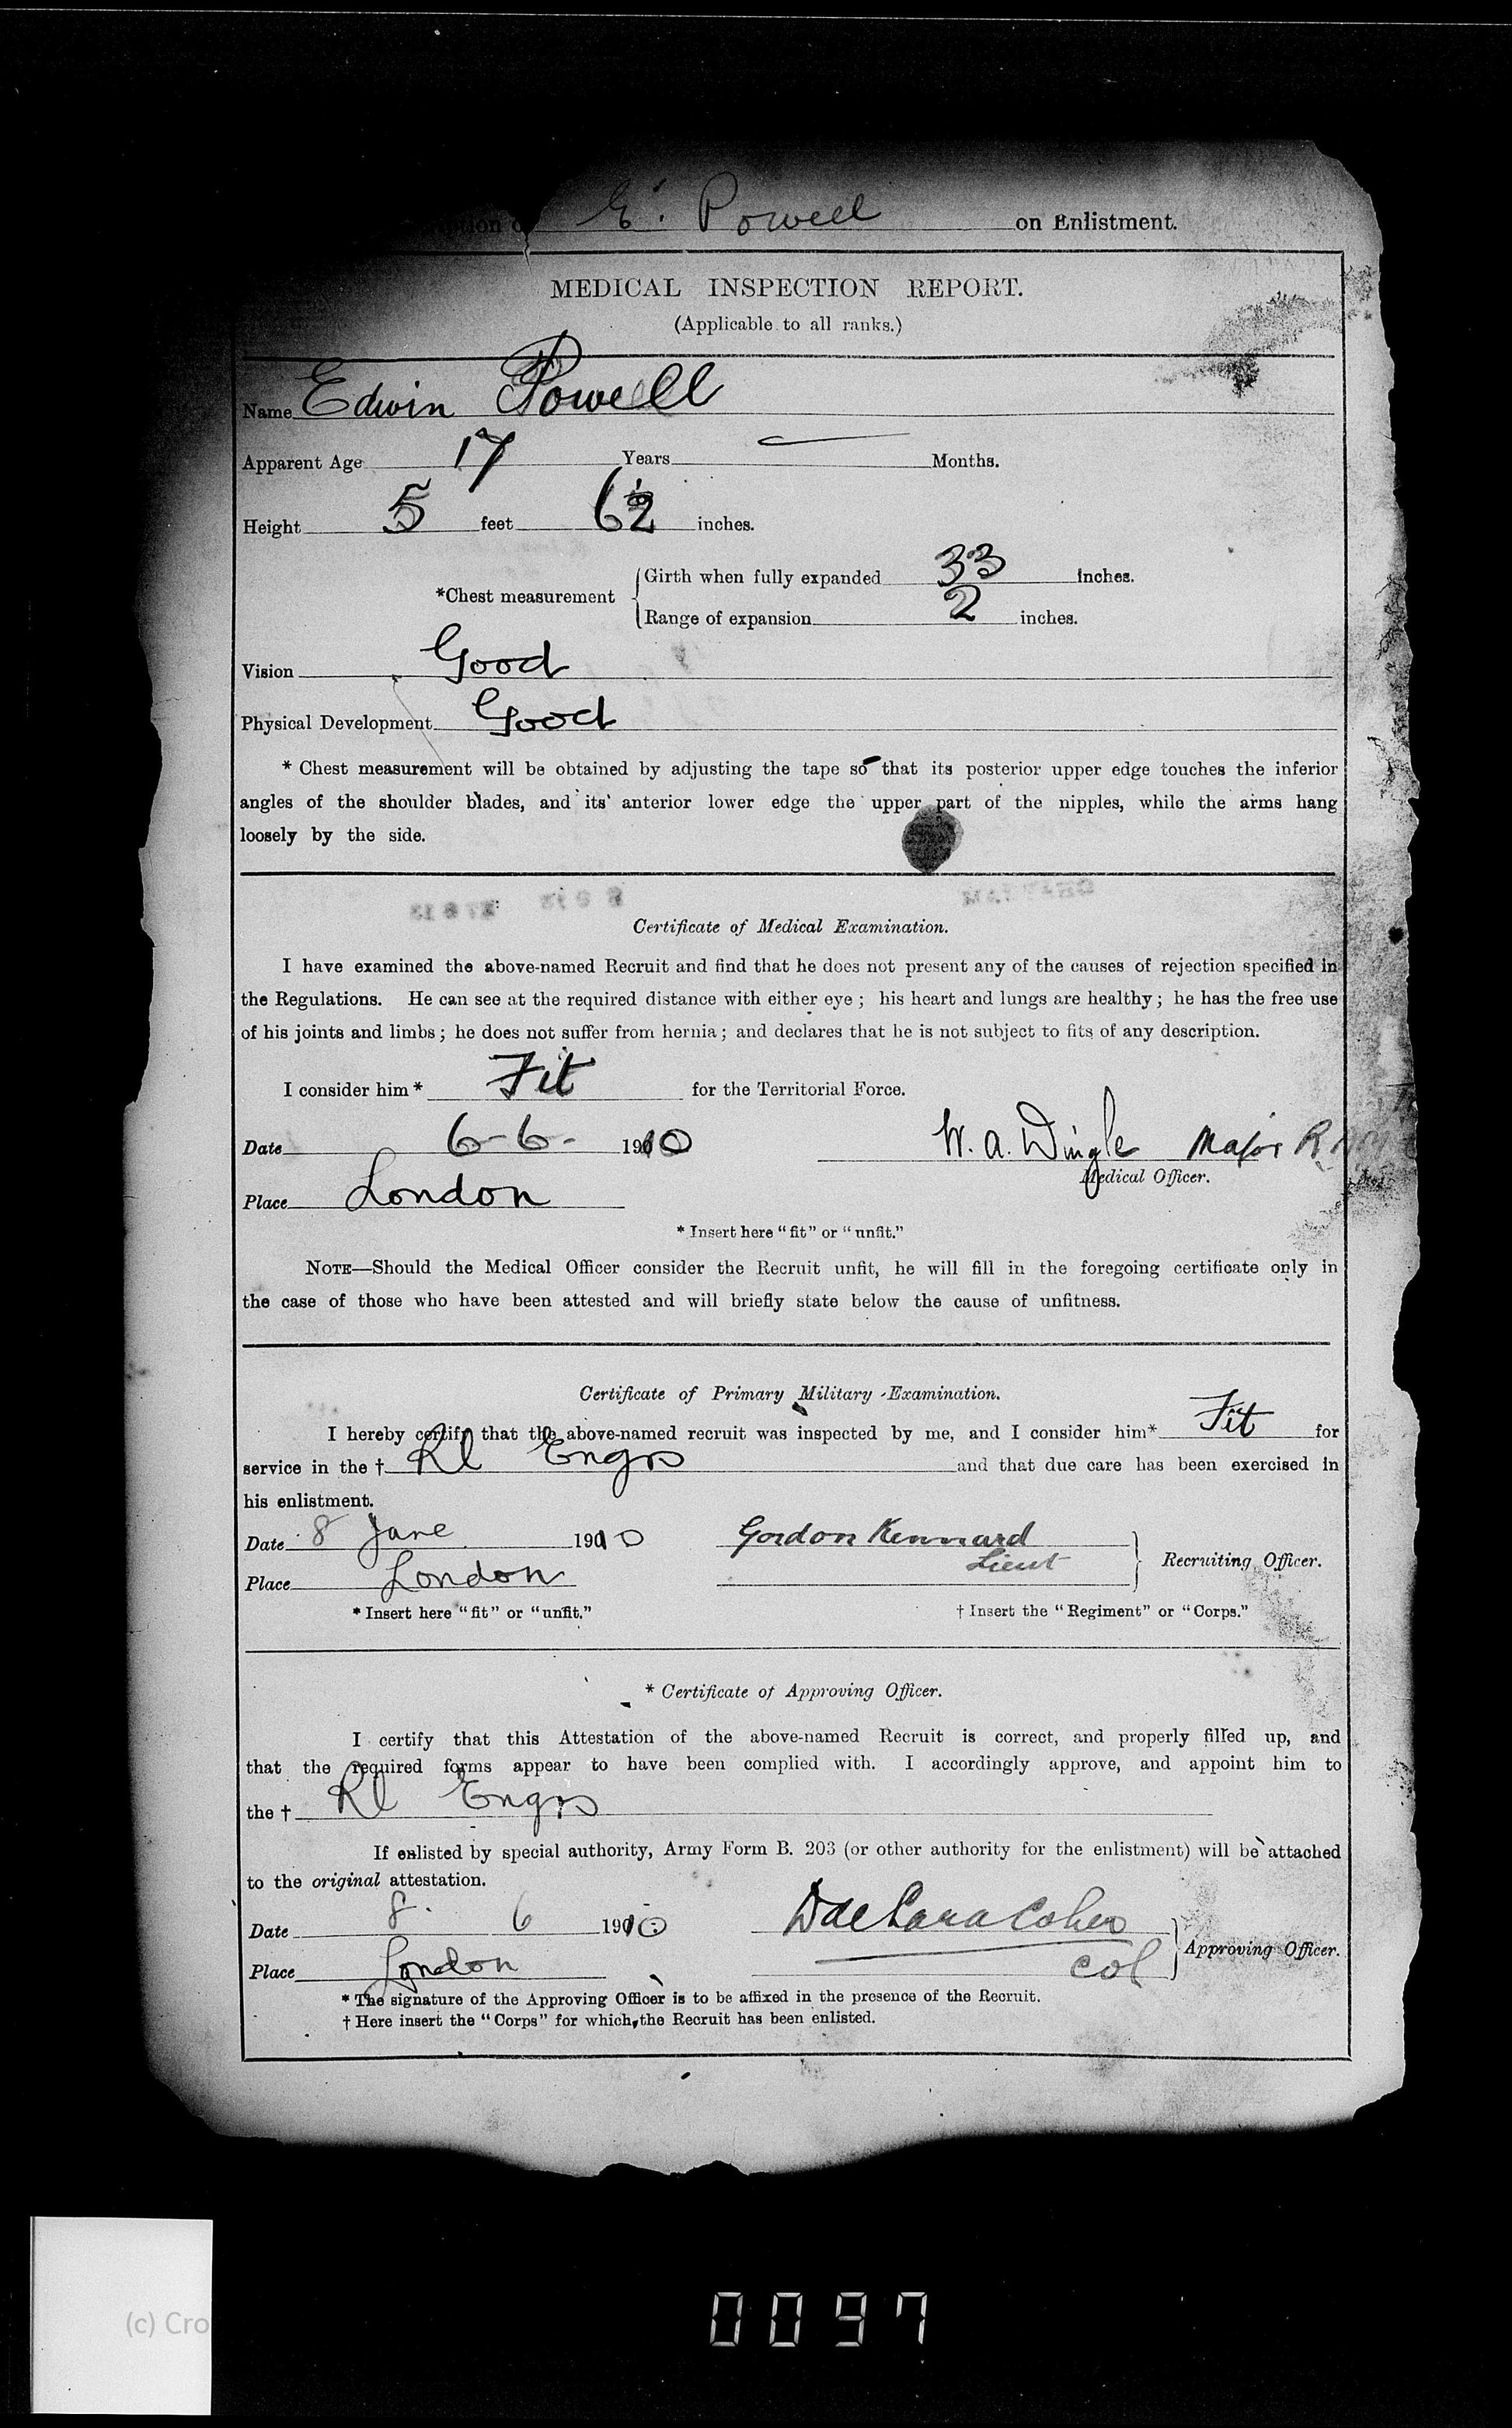 E. Powell on Enlistment.
MEDICAL INSPECTION REPORT.
(Applicable to all ranks.)
Name Edwin Powell
Apparent Age 17 Years — Months.
Height 5 feet 6½ inches.
*Chest measurement
Girth when fully expanded 33 inches.
Range of expansion 2 inches.
Vision Good
Physical Development Good
* Chest measurement will be obtained by adjusting the tape so that its posterior upper edge touches the inferior
angles of the shoulder blades, and its anterior lower edge the upper part of the nipples, while the arms hang
loosely by the side.
Certificate of Medical Examination.
I have examined the above-named Recruit and find that he does not present any of the causes of rejection specified in
the Regulations. He can see at the required distance with either eye; his heart and lungs are healthy; he has the free use
of his joints and limbs; he does not suffer from hernia; and declares that he is not subject to fits of any description.
I consider him * Fit for the Territorial Force.
Date 6-6- 1910 W. A. Dingle Major
Medical Officer.
Place London
* Insert here "fit" or "unfit."
NOTE—Should the Medical Officer consider the Recruit unfit, he will fill in the foregoing certificate only in
the case of those who have been attested and will briefly state below the cause of unfitness.
Certificate of Primary Military Examination.
I hereby certify that the above-named recruit was inspected by me, and I consider him* Fit for
service in the † Rl Engrs and that due care has been exercised in
his enlistment.
Date 8 June 1910 Gordon Kennard
Lieut Recruiting Officer.
Place London
* Insert here "fit" or "unfit." † Insert the "Regiment" or "Corps."
* Certificate of Approving Officer.
I certify that this Attestation of the above-named Recruit is correct, and properly filled up, and
that the required forms appear to have been complied with. I accordingly approve, and appoint him to
the † Rl Engrs
If enlisted by special authority, Army Form B. 203 (or other authority for the enlistment) will be attached
to the original attestation.
Date 8. 6 1910
Place London Col Approving Officer.
* The signature of the Approving Officer is to be affixed in the presence of the Recruit.
† Here insert the "Corps" for which the Recruit has been enlisted.
(c) Cro
0097